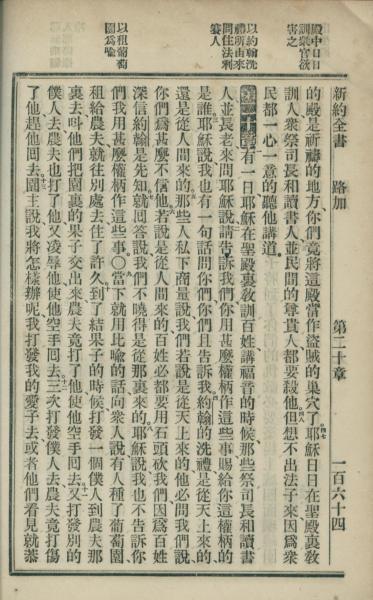 新約全書　路加　第二十章　一百六十四
殿中日日
訓衆官欲
害之
以約翰洗
禮所由來
問住法利
賽人
以租葡萄
園爲喻
的殿是祈禱的地方你們竟將這殿當作盜賊的巢穴了耶穌日日在聖殿裏敎
訓人衆祭司長和讀書人並民間的尊貴人都要殺他但想不出法子來因爲衆
民都一心一意的聽他講道
第二十章有一日耶穌在聖殿裏敎訓百姓講福音的時候那些祭司長和讀書
人並長老來問耶穌說請告訴我們你用甚麼權柄作這些事賜給你這權柄的
是誰耶穌說我也有一句話問你們你們且告訴我約翰的洗禮是從天上來的
還是從人間來的那些人私下商量說我們若說是從天上來的他必問我們說
你們爲甚麼不信他若說是從人間來的百姓必都要用石頭砍我們因爲百姓
深信約翰是先知就回答說我們不曉得是從那裏來的耶穌說我也不告訴你
們我用甚麼權柄作這些事〇當下就用比喻的話向衆人說有人種了葡萄園
租給農夫就往別處去住了許久到了結果子的時候打發一個僕人到農夫那
裏去叫他們把園裏的果子交出來農夫竟打了他使他空手回去又打發別的
僕人去農夫也打了他又凌辱他使他空手回去三次打發僕人去農夫竟打傷
了他趕他回去園主說我將怎樣辦呢我打發我的愛子去或者他們看見就恭